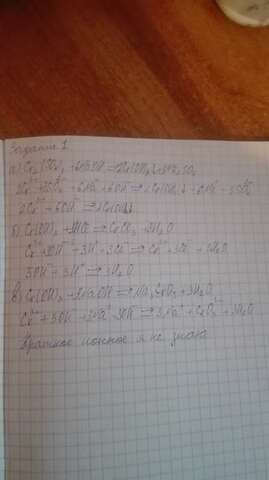 Задание 1
а) Cr₂(SO₄)₃ + 6NaOH = 2Cr(OH)₃↓ + 3Na₂SO₄
2Cr³⁺ + 3SO₄²⁻ + 6Na⁺ + 6OH⁻ = 2Cr(OH)₃↓ + 6Na⁺ + 3SO₄²⁻
2Cr³⁺ + 6OH⁻ = 2Cr(OH)₃↓
б) Cr(OH)₃ + 3HCl = CrCl₃ + 3H₂O
Cr³⁺ + 3OH⁻ + 3H⁺ + 3Cl⁻ = Cr³⁺ + 3Cl⁻ + 3H₂O
3OH⁻ + 3H⁺ = 3H₂O
в) Cr(OH)₃ + 3NaOH = Na₃CrO₃ + 3H₂O
Cr³⁺ + 3OH⁻ + 3Na⁺ + 3OH⁻ = 3Na⁺ + CrO₃³⁻ + 3H₂O
Краткое ионное я не знаю